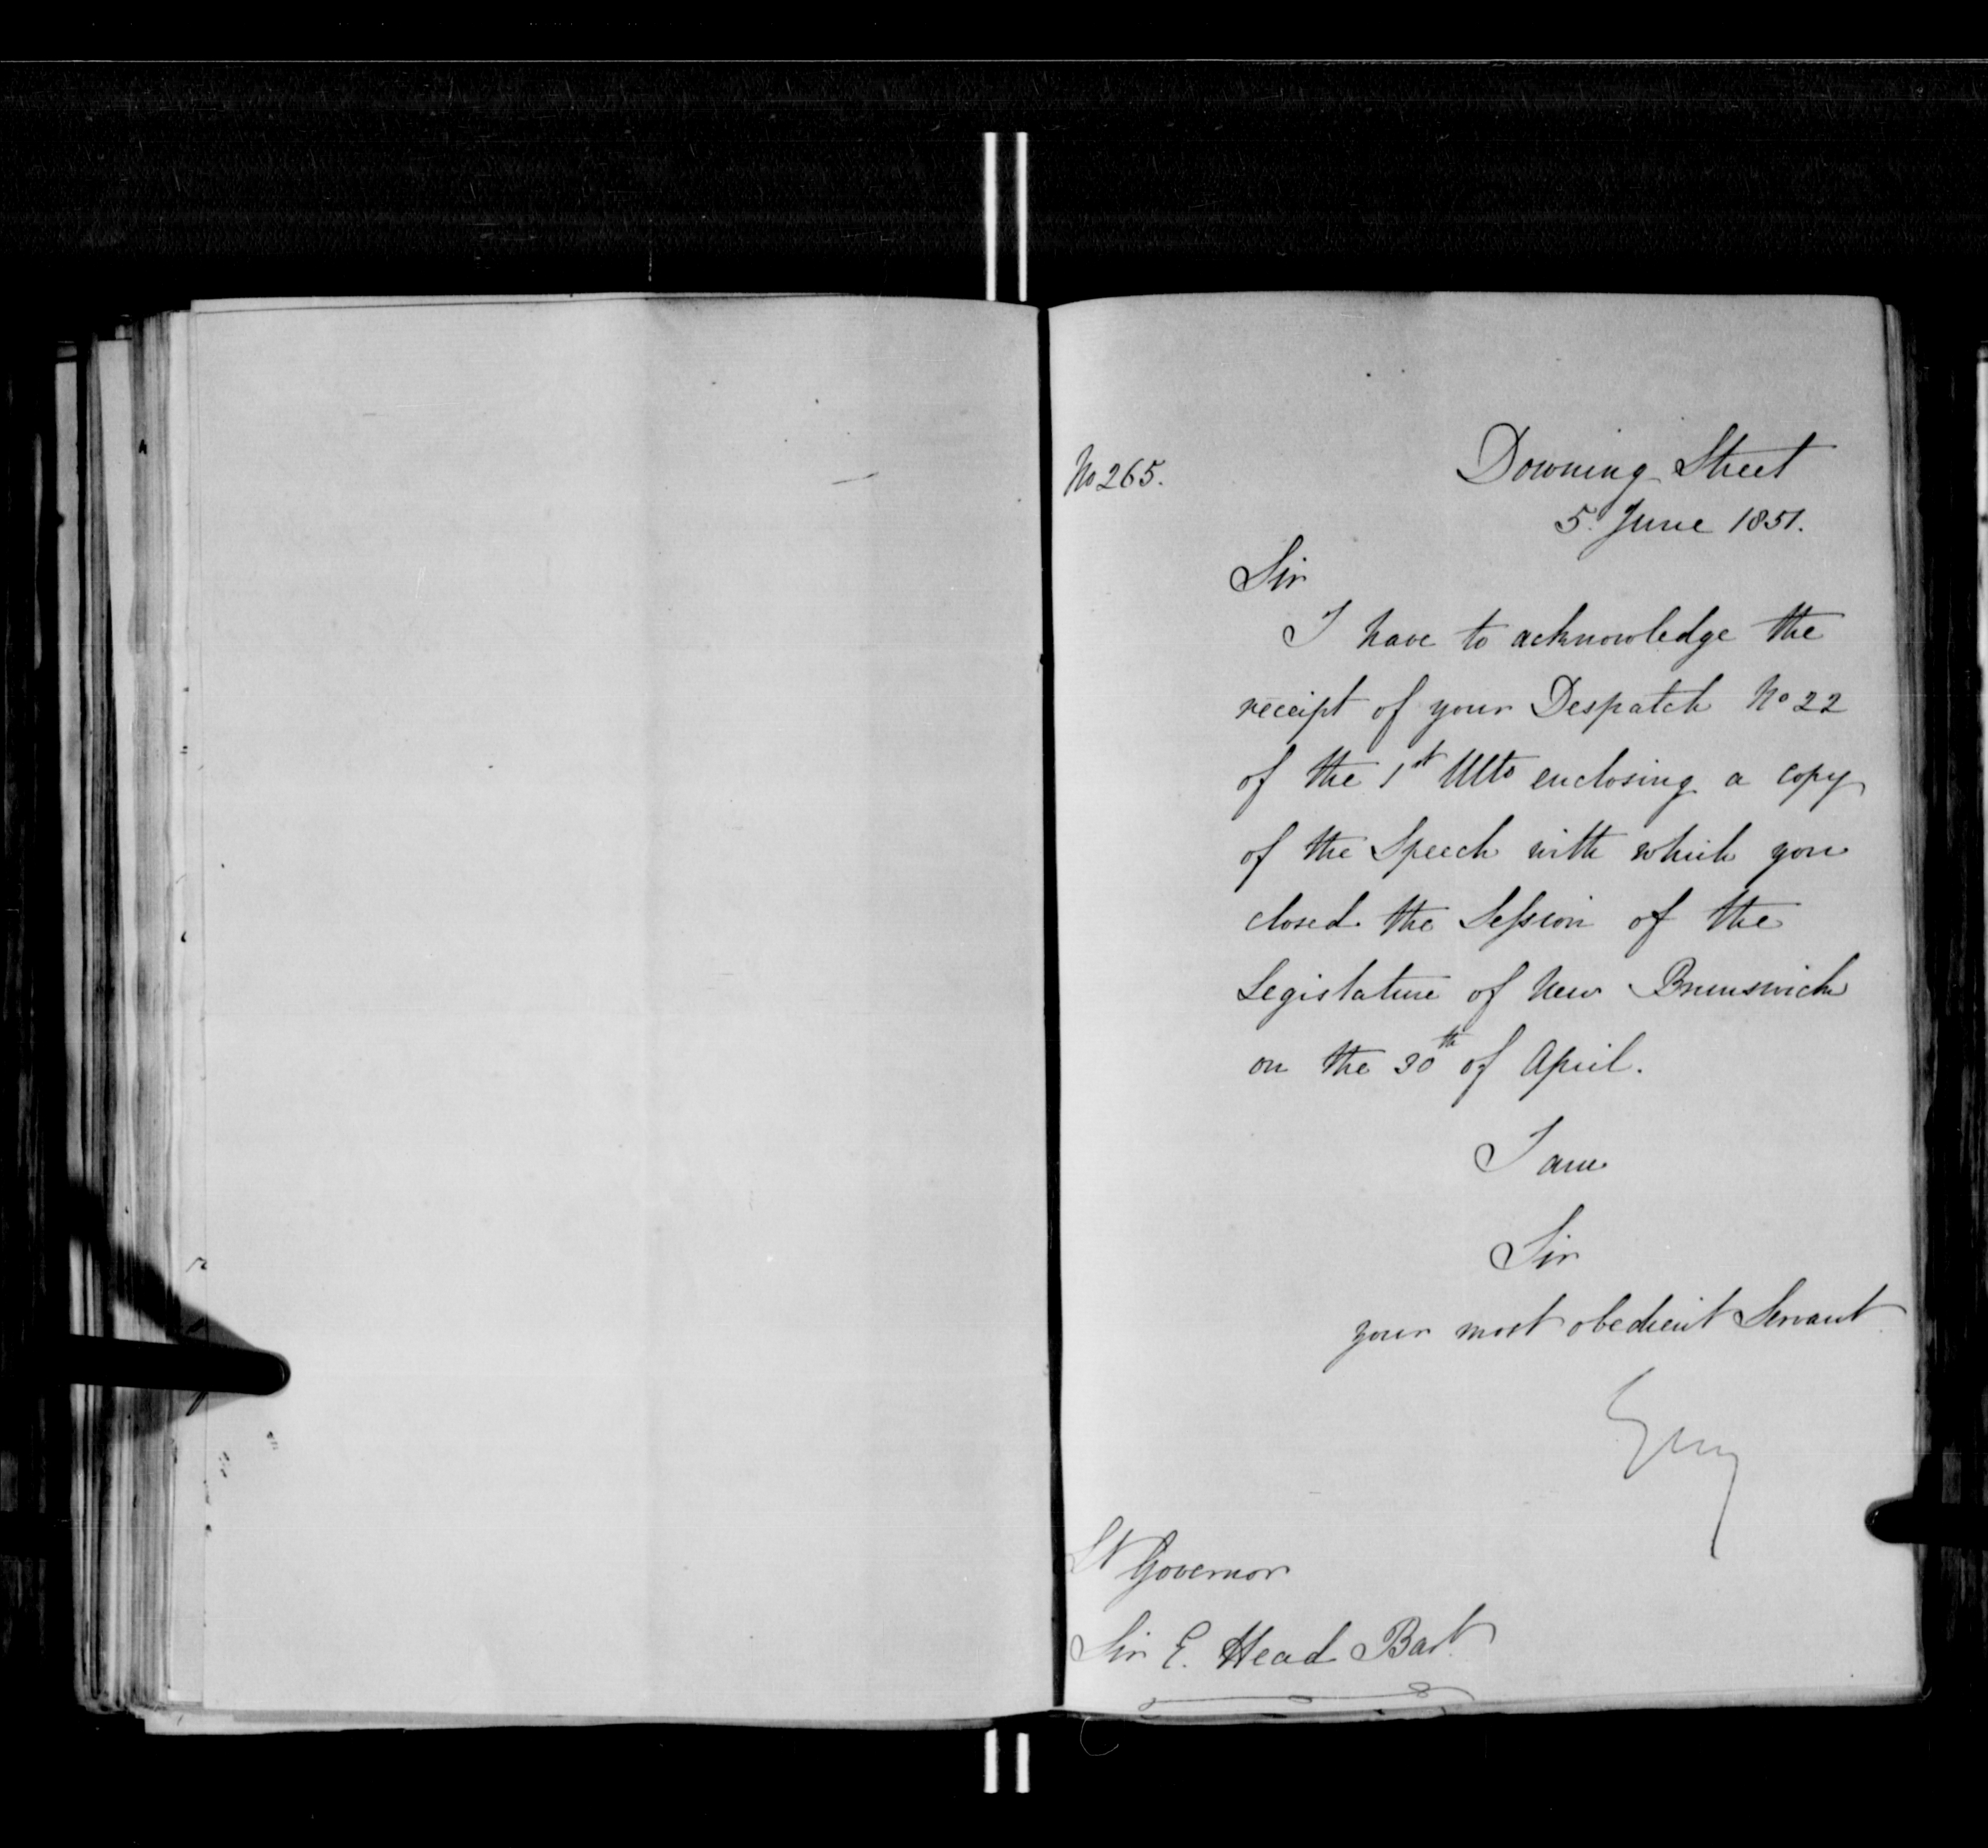 No 265.
Downing Street
5. June 1851.
Sir
I have to acknowledge the
receipt of your Despatch No 22
of the 1st Ulto enclosing a copy
of the Speech with which you
closed the Session of the
Legislature of New Brunswick
on the 30th of April.
I am
Sir
your most obedient Servant
Grey
Lt Governor
Sir E. Head Bart